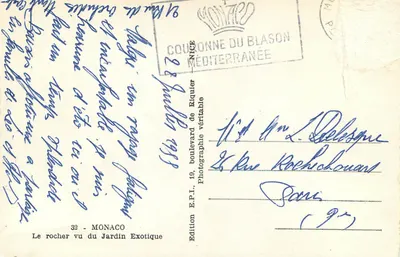 MONACO
COURONNE DU BLASON
MÉDITERRANÉE
28 Juillet 1958
21 Rue des
Malgré un voyage fatigant
et inconfortable je suis
heureuse d'être ici où il
fait un temps splendide
Baisers affectueux à
la famille
Edition E.P.I., 19, boulevard de Riquier - NICE
Photographie véritable
Mme L. Delesque
26 Rue Rochechouart
Paris
(9e)
32 - MONACO
Le rocher vu du Jardin Exotique